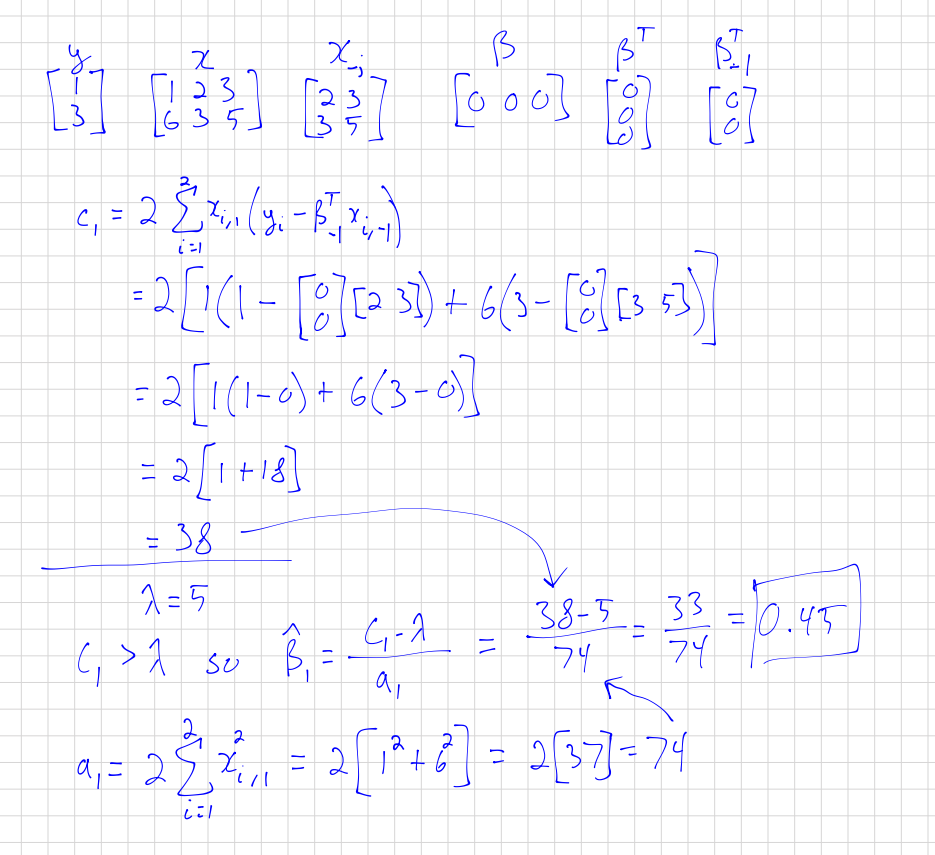 y x x_{-j} β β^T β^T_{-1}
[1 3] [1 2 3 6 3 5] [2 3 3 5] [0 0 0] [0 0 0] [0 0]
c_1 = 2 Σ_{i=1}^{2} x_{i,1} (y_i - β^T_{-1} x_{i,-1})
= 2 [ 1(1 - [0 0] [2 3]) + 6(3 - [0 0] [3 5]) ]
= 2 [ 1(1-0) + 6(3-0) ]
= 2 [ 1 + 18 ]
= 38
λ = 5
c_1 > λ so β̂_1 = (c_1 - λ)/a_1 = (38-5)/74 = 33/74 = 0.45
a_1 = 2 Σ_{i=1}^{2} x^2_{i,1} = 2 [ 1^2 + 6^2 ] = 2[37] = 74